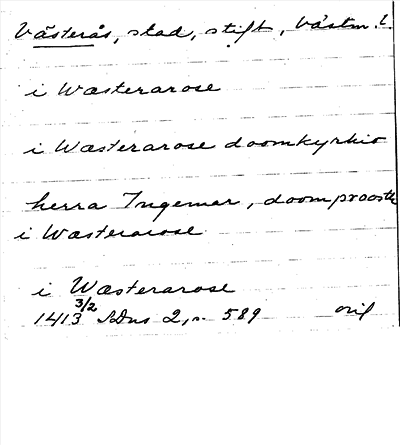 Västerås, stad, stift, Västm. l.
i Wæsterarose
i Wæsterarose doomkyrkio
herra Ingemar, doomprooste
i Wæsterarose
i Wæsterarose
1413 3/2 SDns 2, s. 589 orig